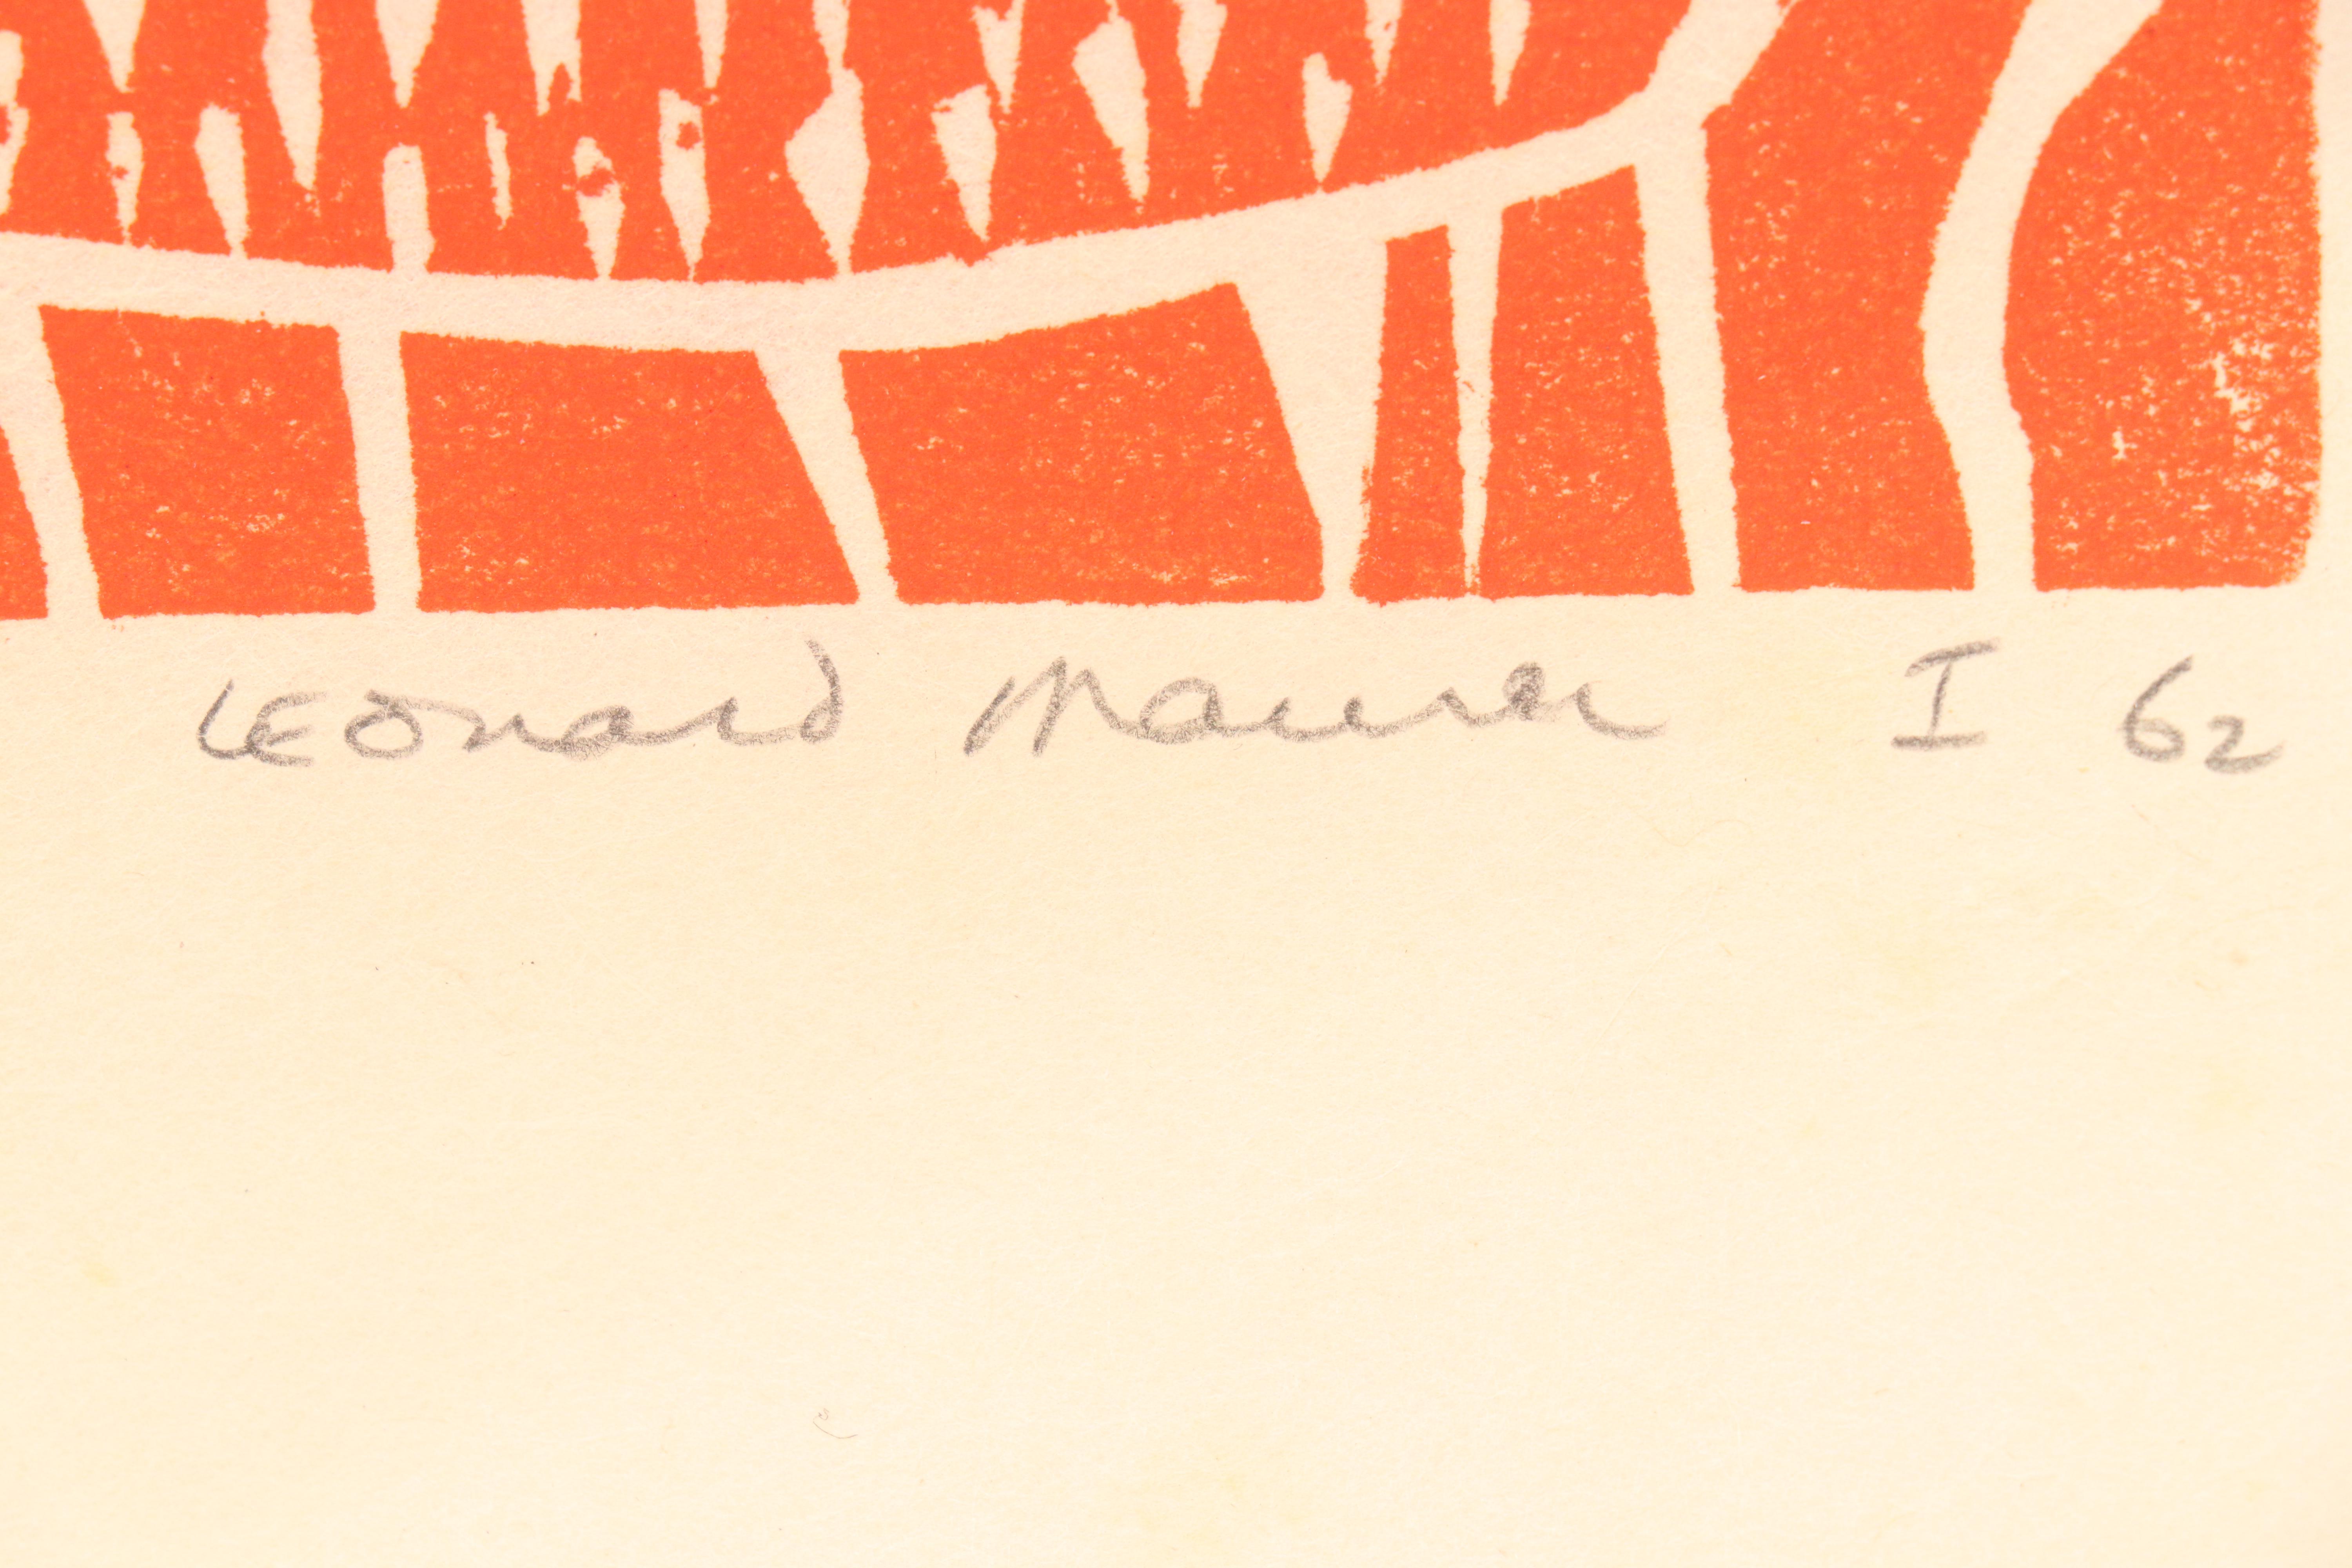 Leonard Maurer I 62